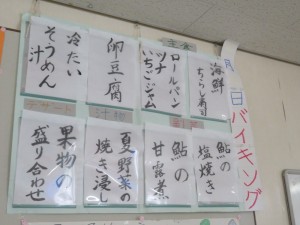 月
日
バイキング
主食
海鮮
ちらし寿司
ロールパン
ツナ
いちごジャム
納豆・豆腐
冷たい
そうめん
汁
デザート
汁物
鮎の
塩焼き
鮎の
甘露煮
夏野菜の
焼き浸し
果物の
盛り合わせ